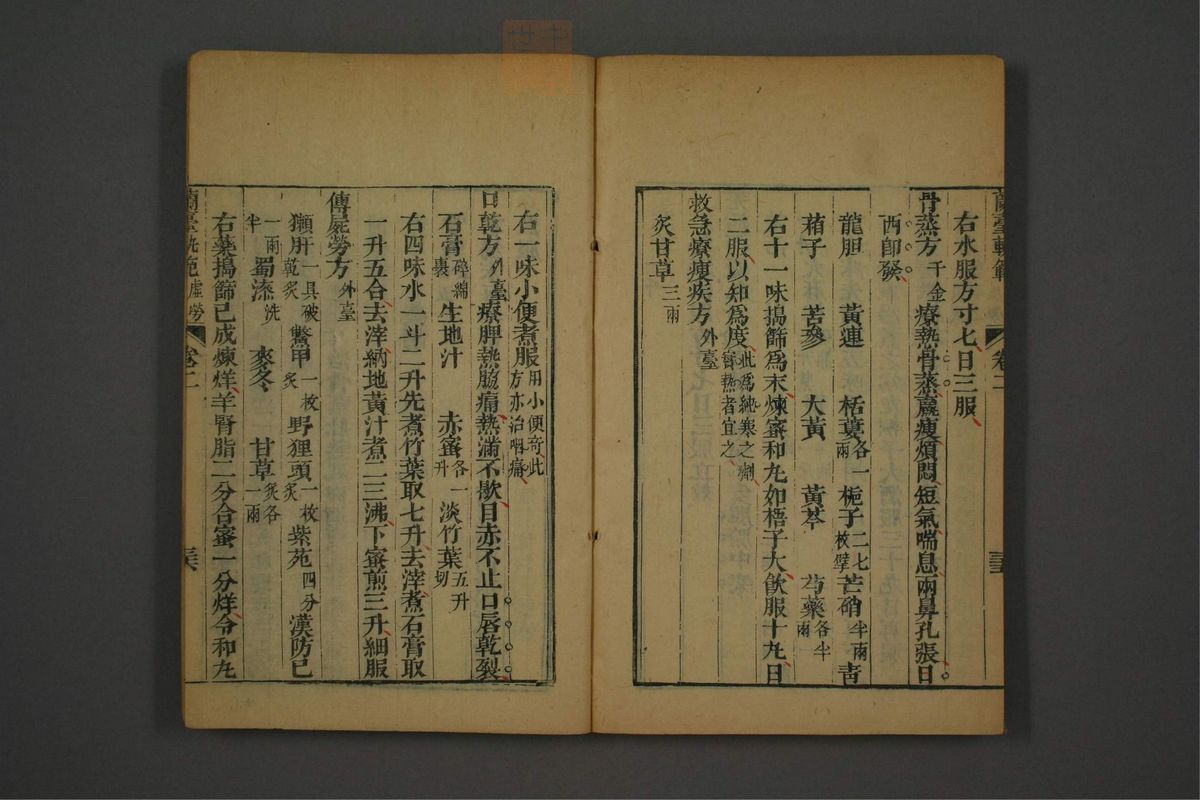 蘭臺軌範 卷二
右水服方寸七日三服
骨蒸方千金 療熱骨蒸羸瘦煩悶短氣喘息兩鼻孔張日
西卽發
龍胆 黃連 栝蔞各一兩 梔子二七枚擘 芒硝半兩 青
葙子 苦參 大黃 黃芩 芍藥各半兩
右十一味搗篩爲末煉蜜和丸如梧子大飲服十丸日
二服以知爲度此爲純寒之劑實熱者宜之
救急療瘦疾方外臺
炙甘草三兩
右一味小便煮服用小便奇此方亦治咽痛
口乾方外臺 療脾熱脇痛熱滿不歇目赤不止口唇乾裂
石膏碎綿裹 生地汁 赤蜜各一升 淡竹葉五升切
右四味水一斗二升先煮竹葉取七升去滓煮石膏取
一升五合去滓納地黃汁煮二三沸下蜜煎三升細服
傳屍勞方外臺
獺肝一具破乾炙 鱉甲一枚炙 野狸頭一枚炙 紫苑四分 漢防已
一兩半 蜀漆洗 麥冬 甘草炙各一兩
右藥搗篩已成煉烊羊腎脂二分合蜜一分烊令和丸
蘭臺軌範虛勞 卷二 三六